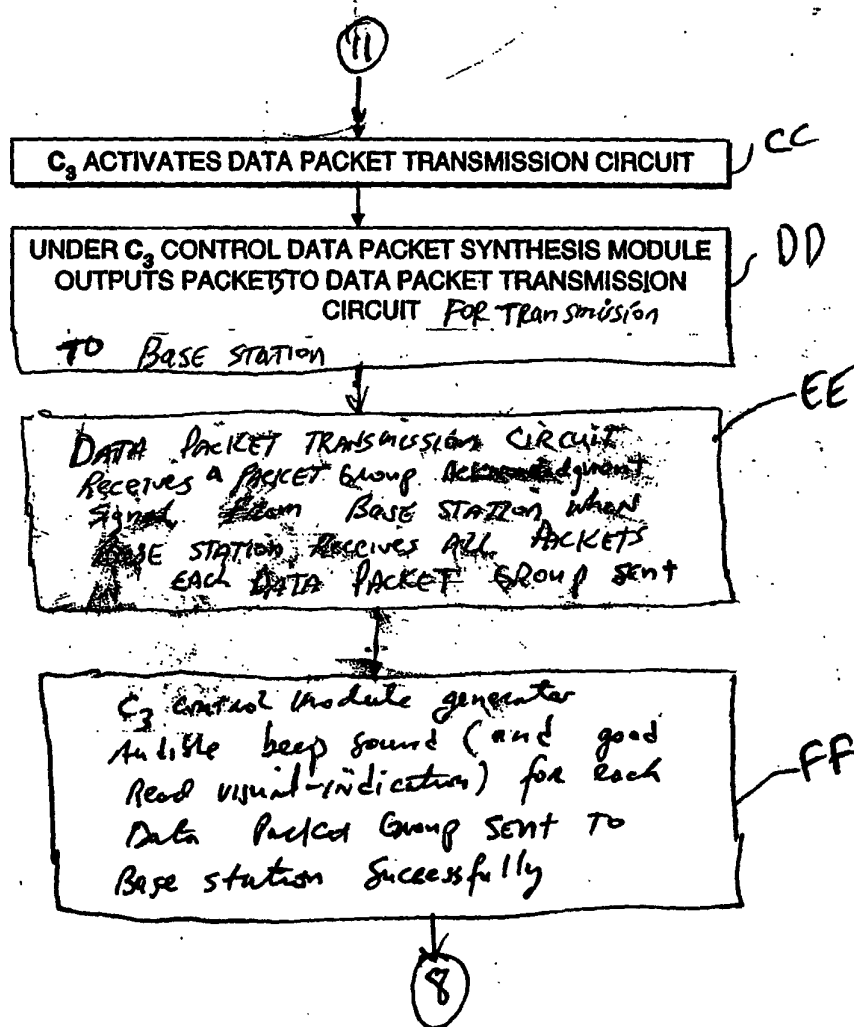 11
C₃ ACTIVATES DATA PACKET TRANSMISSION CIRCUIT
CC
UNDER C₃ CONTROL DATA PACKET SYNTHESIS MODULE
OUTPUTS PACKETS TO DATA PACKET TRANSMISSION
CIRCUIT FOR Transmission
TO BASE STATION
DD
DATA PACKET TRANSMISSION CIRCUIT
Receives a PACKET Group Acknowledgment
Signal From BASE STATION when
BASE STATION RECEIVES ALL PACKETS
EACH DATA PACKET GROUP Sent
EE
C₃ control module generator
Audible beep sound (and good
Read visual-indication) for each
Data Packet Group SENT TO
Base station Successfully
FF
8